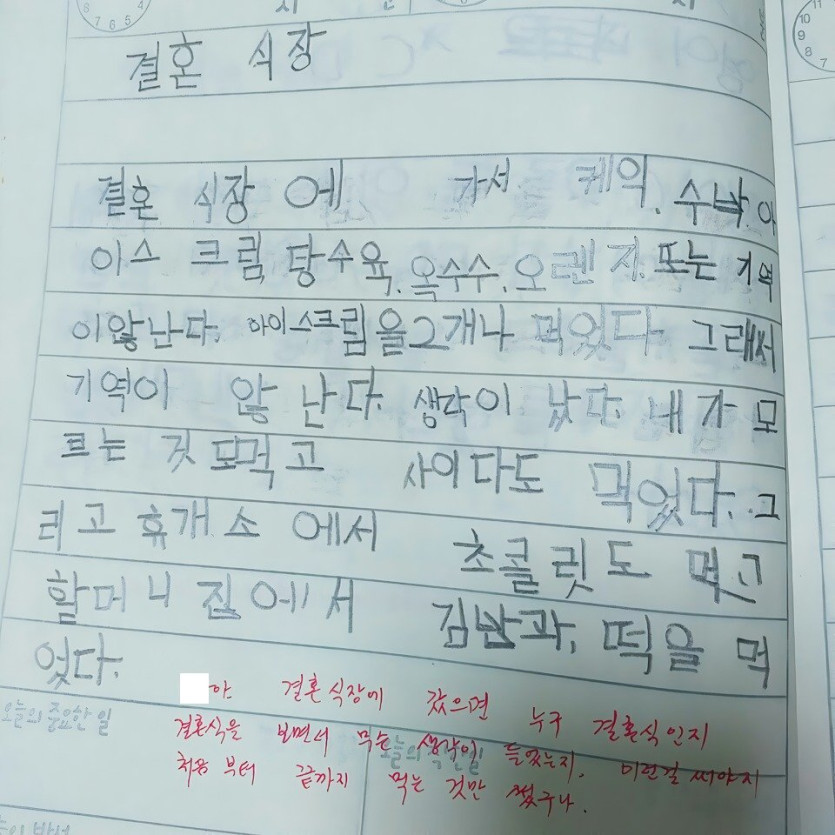 결혼 식장
결혼 식장 에 가서 케익, 수박, 아
이스 크림, 탕수육, 옥수수, 오렌지, 또는 기역
이않난다. 아이스크림을 2개나 먹었다. 그래서
기역이 않 난다. 생각이 났다. 내가 모
르는 것 또먹고 사이다도 먹었다. 그
리고 휴개소 에서 초콜릿도 먹고
할머니 집에서 김밥과, 떡을 먹
었다.
아 결혼식장에 갔으면 누구 결혼식인지
결혼식을 보면서 무슨 생각이 들었는지, 이런걸 써야지
처음 부터 끝까지 먹는 것만 썼구나.
오늘의 중요한 일